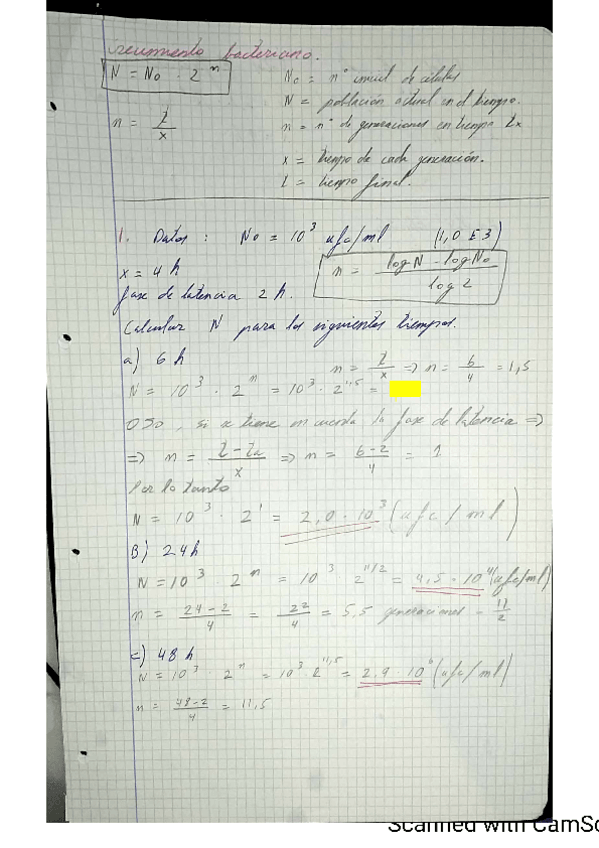 crecimiento bacteriano.
N = No · 2^n
No = nº inicial de células
N = población actual en el tiempo.
n = t/x
n = nº de generaciones en tiempo tx
x = tiempo de cada generación.
t = tiempo final.
1. Datos : No = 10^3 ufc/ml (1,0 E3)
x = 4 h
n = (log N - log No)/log 2
fase de latencia 2 h.
Calcular N para los siguientes tiempos.
a) 6 h
n = t/x => n = 6/4 = 1,5
N = 10^3 · 2^n = 10^3 · 2^1,5 =
OJO, si se tiene en cuenta la fase de latencia =>
=> n = (t - ta)/x => n = (6-2)/4 = 1
Por lo tanto
N = 10^3 · 2^1 = 2,0 · 10^3 (ufc / ml)
B) 24 h
N = 10^3 2^n = 10^3 2^11/2 = 4,5 · 10^4 (ufc/ml)
n = (24 - 2)/4 = 22/4 = 5,5 generaciones = 11/2
c) 48 h
N = 10^3 · 2^n = 10^3 · 2^11,5 = 2,9 · 10^6 (ufc/ml)
n = (48-2)/4 = 11,5
Scanned with CamSc